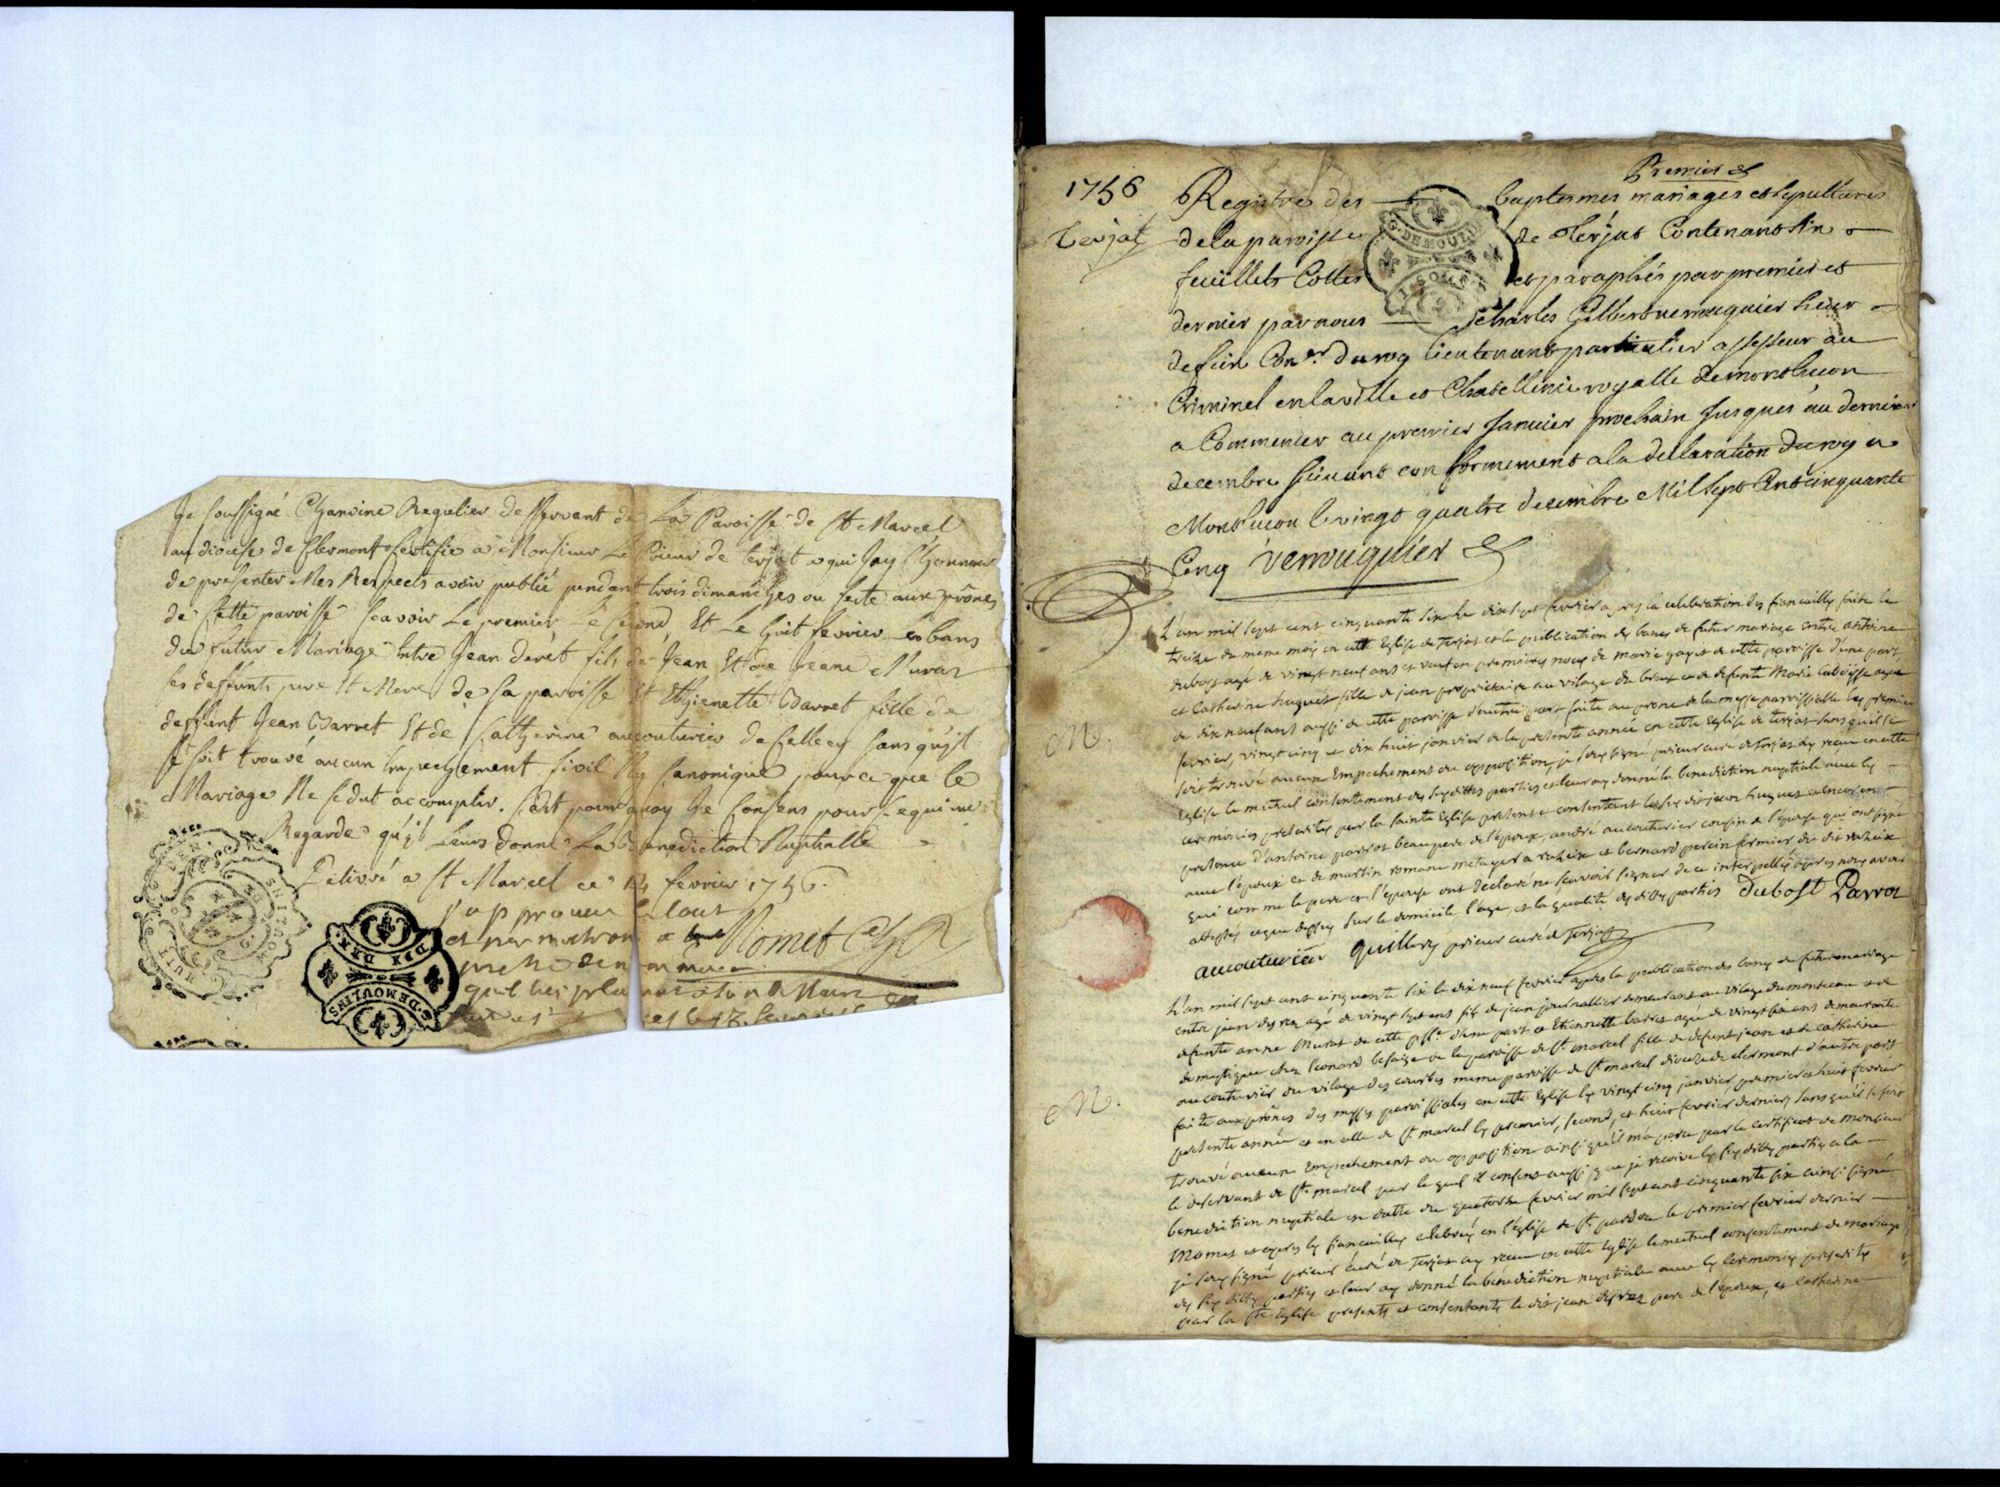 Je soussigné Chanoine Regulier desservant de La Paroisse de St Marcel
au diocese de Clermont Certifie a Monsieur Le Prieur de terjat a qui Jay L'honneur
de presenter Mes Respects avoir publié pendant trois dimanches ou feste aux prônes
de Cette paroisse scavoir Le premier Le second Et Le huit fevrier Les bans
du futur Mariage Entre Jean deret fils de Jean Et de Jeane Murat
les deffunts pere Et Mere de sa paroisse Et Ethienette Barret fille de
deffunt Jean Barret Et de Catherine aucouturier de Celle cy sans qu'il
se soit trouvé aucun Empechement Civil Ny Canonique pour ce que le
Mariage Ne se dut accomplir. C'est pourquoy Je Consens pour ce qui me
Regarde qu'il Leurs donne La Benediction Nuptialle
Délivré a St Marcel ce 14 fevrier 1756.
Momet
DEN.
HUIT
MOULINS
DIX DEN.
G. DEMOULINS
1756
Terjat
Premier
Registre des baptesmes mariages et sepultures
de la paroisse de Terjat Contenant six
feuillets Cottés et paraphés par premier et
dernier par nous Charles Gilbert verrouquier sieur
defein Con.er du roy lieutenant particulier assesseur au
Criminel en la ville et Chatellenie royalle de montlucon
a Commencer au premier Janvier prochain Jusques au dernier
decembre suivant conformement a la declaration du roy a
Montlucon le vingt quatre decembre Mil sept Cent cinquante
Cinq verrouquier
G. DEMOULINS
L'an mil sept cent cinquante six le dix sept fevrier apres la celebration des fiancailles faite le
treize du meme mois en cette Eglise de Terjat et la publication des bancs de futur mariage entre antoine
dubost agé de vingt neuf ans et veuf en premieres noces de marie gayet de cette paroisse d'une part,
et Catherine huguet fille de jean proprietaire au vilage du breux et de defunte Marie labouesse agée
de dix neuf ans aussi de cette paroisse d'autre part faite au prone de la messe parroissialle les premier
fevrier, vingt cinq et dix huit janvier de la presente année en cette Eglise de terjat sans qu'il se
soit trouvé aucun Empechement ou opposition, je soussigné prieur curé de Terjat ay reçu en cette
Eglise le mutuel consentement des susdittes parties et leur ay donné la benediction nuptiale avec les
ceremonies prescrites par la sainte Eglise present et consentant le susdit jean huguet et encore en
presence d'antoine parrot beaupere de l'epoux, andré aucouturier cousin de l'epouse qui ont signé
avec l'epoux et de martin romane metayer a et bernard perrin fermier du dit
qui comme le pere et l'epouse ont declaré ne scavoir signer de ce interpellés apres nous avoir
attesté comme dessus sur le domicile l'age, et la qualité des dittes parties Dubost Parrot
aucouturier Quillery prieur curé de Terjat
M.
L'an mil sept cent cinquante six le dix neuf fevrier apres la publication des bancs de futur mariage
entre jean desrez agé de vingt sept ans fils de jean journallier demeurant au vilage du monteau et de
defunte anne Murat de cette psse. d'une part et Etiennette barret agée de vingt six ans demeurante
domestique chez leonard besaize de la paroisse de St. marcel fille de defunt jean et de catherine
aucouturier du vilage des courbes meme paroisse de St. marcel dioceze de clermont d'autre part
faite aux prônes des messes paroissiales en cette Eglise les vingt cinq janvier, premier et huit fevrier
presente année et en celle de St. marcel les premier, second, et huit fevrier derniers sans qu'il se soit
trouvé aucun Empechement ou opposition ainsi qu'il m'a paru par le certificat de monsieur
le desservant de St. marcel par lequel il consent aussi que je recoive les susdittes parties a la
benediction nuptiale en datte du quatorze fevrier mil sept cent cinquante six ainsi signé
Momet et apres les fiancailles celebrées en l'église de St. pardou le premier fevrier dernier
je soussigné prieur curé de Terjat ay recu en cette Eglise le mutuel consentement de mariage
des susdittes parties et leur ay donné la bénédiction nuptiale avec les ceremonies prescrites
par la Ste Eglise presents et consentants le dit jean desrez pere de l'epoux, et catherine
M.